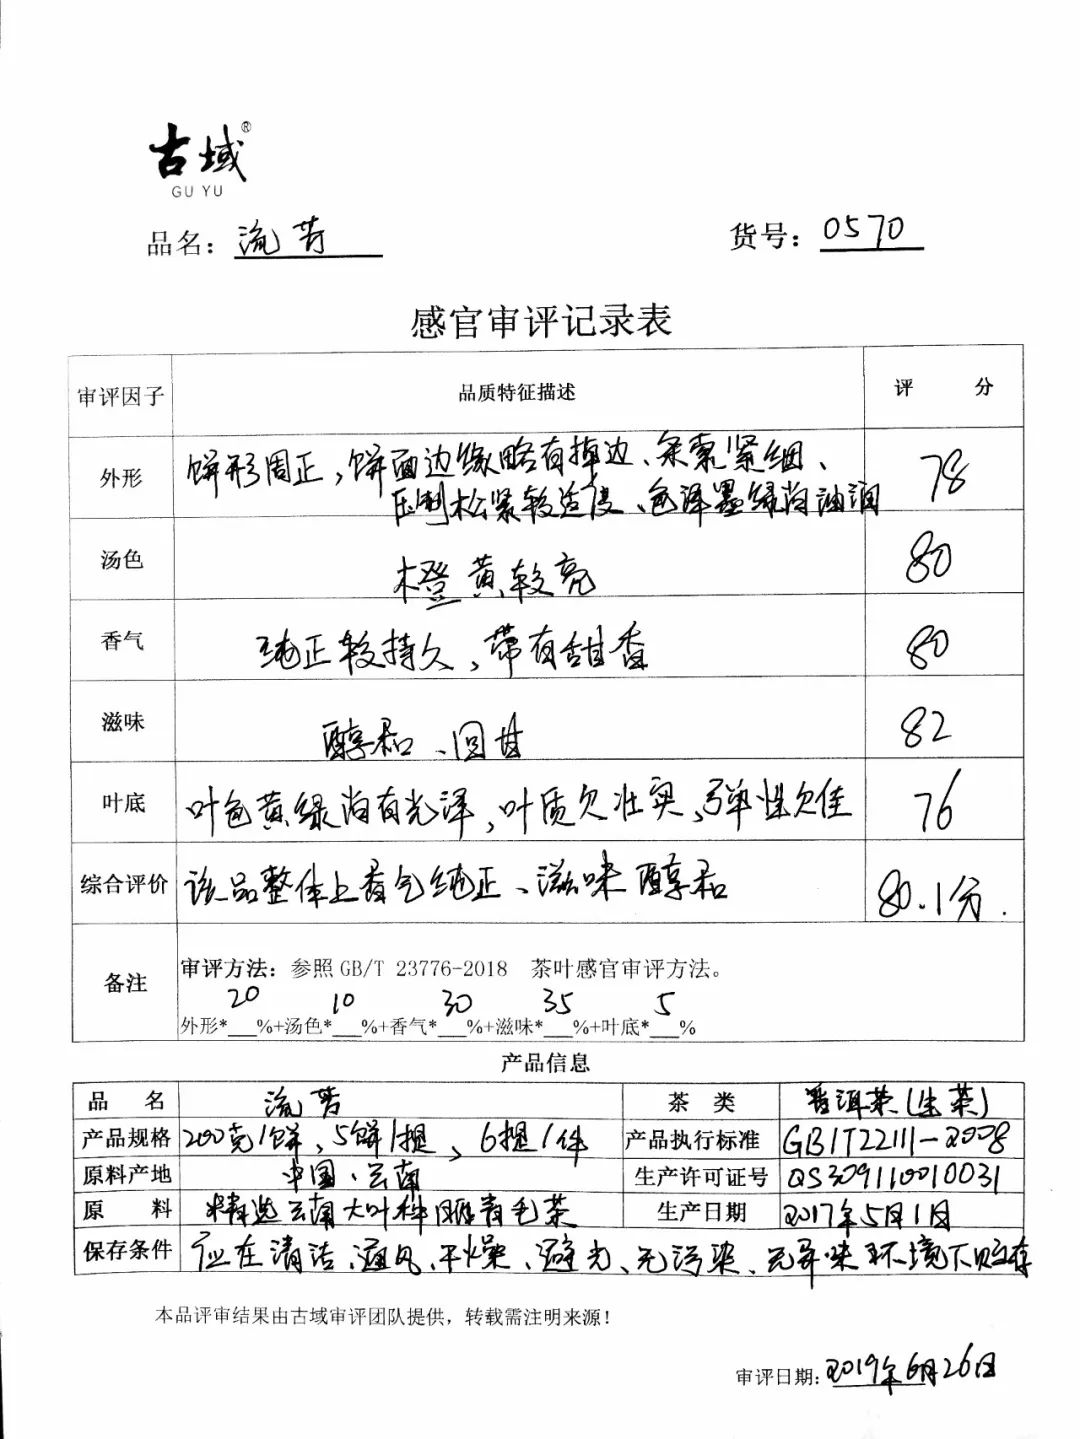 古域®
GU YU
品名：流芳 货号：0570
感官审评记录表
审评因子 品质特征描述 评 分
外形 饼形周正，饼面边缘略有掉边、条索紧细、 78
压制松紧较适度、色泽墨绿尚油润
汤色 橙黄较亮 80
香气 纯正较持久、带有甜香 80
滋味 醇和、回甘 82
叶底 叶色黄绿尚有光泽，叶质欠壮实，弹性欠佳 76
综合评价 该品整体上香气纯正、滋味醇和 80.1分.
备注 审评方法：参照 GB/T 23776-2018 茶叶感官审评方法。
外形*20%+汤色*10%+香气*30%+滋味*35%+叶底*5%
产品信息
品 名 流芳 茶 类 普洱茶(生茶)
产品规格 200克/饼、5饼/提、6提/件 产品执行标准 GB/T22111-2008
原料产地 中国·云南 生产许可证号 QS309110010031
原 料 精选云南大叶种晒青毛茶 生产日期 2017年5月1日
保存条件 应在清洁、通风、干燥、避光、无污染、无异味环境下贮存
本品评审结果由古域审评团队提供，转载需注明来源！
审评日期：2019年6月26日